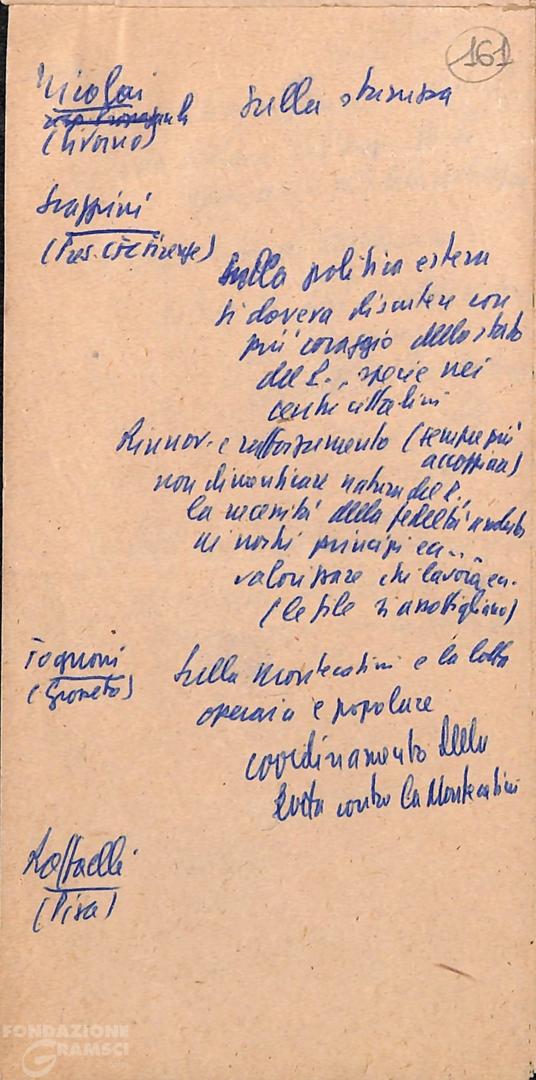 161
Nicolai sulla stampa
(Livorno)
Scappini
(Pres. CFC Firenze)
Sulla politica estera
si doveva discutere con
più coraggio dello stato
del P., specie nei
centri cittadini
Rinnov. e rafforzamento (sempre più
accoppiare)
non dimenticare natura del P.,
la necessità della fedeltà
ai nostri principi ecc..
valorizzare chi lavora ecc.
(le file si assottigliano)
Tognoni Sulla Montecatini e la lotta
(Grosseto) operaia e popolare
coordinamento della
lotta contro la Montecatini
Raffaelli
(Pisa)
FONDAZIONE
GRAMSCI